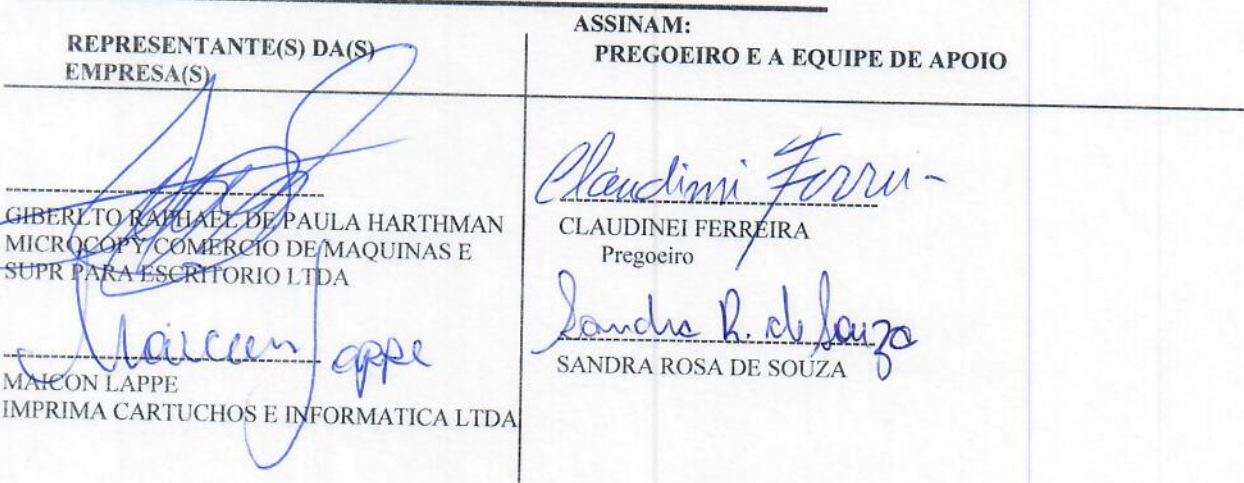 ASSINAM:
REPRESENTANTE(S) DA(S)
EMPRESA(S)
GIBERLTO RAPHAEL DE PAULA HARTHMAN
MICROCOPY COMERCIO DE MAQUINAS E
SUPR PARA ESCRITORIO LTDA
Maicon Lappe
MAICON LAPPE
IMPRIMA CARTUCHOS E INFORMATICA LTDA
PREGOEIRO E A EQUIPE DE APOIO
CLAUDINEI FERREIRA
Pregoeiro
Sandra R. de Souza
SANDRA ROSA DE SOUZA